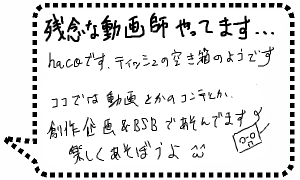 残念な動画師やってます...
hacoです、ティッシュの空き箱のようです
ココでは動画とかのコンテとか、
創作企画&BSBであそんでます
楽しくあそぼうよ